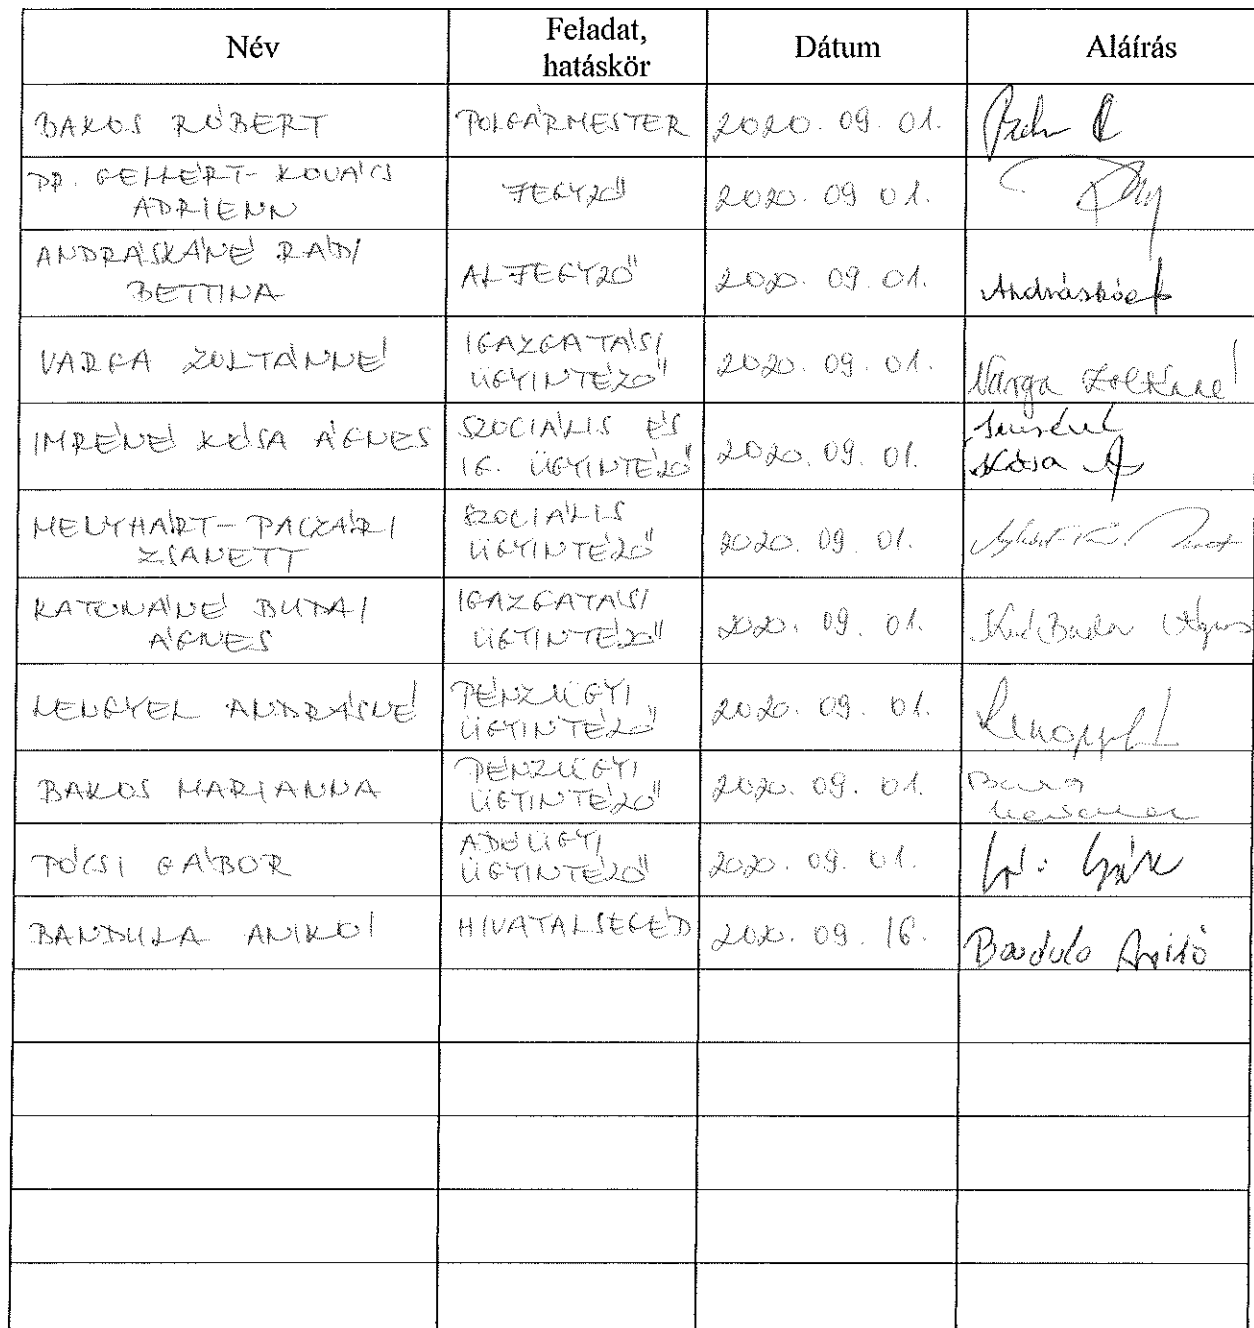 Név
Feladat,
hatáskör
Dátum
Aláírás
BAKOS RÓBERT
POLGÁRMESTER
2020. 09. 01.
DR. GELLÉRT-KOVÁCS
ADRIENN
JEGYZŐ
2020. 09 01.
ANDRÁSKÁNÉ RÁDI
BETTINA
ALJEGYZŐ
2020. 09. 01.
VARGA ZOLTÁNNÉ
IGAZGATÁSI
ÜGYINTÉZŐ
2020. 09. 01.
Varga Zoltánné
IMRÉNÉ KÓSA ÁGNES
SZOCIÁLIS ÉS
IG. ÜGYINTÉZŐ
2020. 09. 01.
Imréné
Kósa Á
MELYHÁRT-
ZSANETT
SZOCIÁLIS
ÜGYINTÉZŐ
2020. 09. 01.
KATONÁNÉ BUDAI
ÁGNES
IGAZGATÁSI
ÜGYINTÉZŐ
2020. 09. 01.
LENGYEL ANDRÁSNÉ
PÉNZÜGYI
ÜGYINTÉZŐ
2020. 09. 01.
BAKOS MARIANNA
PÉNZÜGYI
ÜGYINTÉZŐ
2020. 09. 01.
PÓCSI GÁBOR
ADÓÜGYI
ÜGYINTÉZŐ
2020. 09. 01.
BANDULA ANIKÓ
HIVATALSEGÉD
2020. 09. 16.
Bandula Anikó